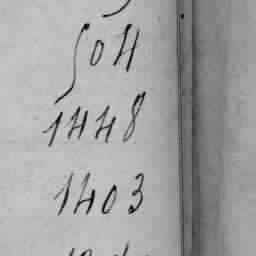 504
1448
1403